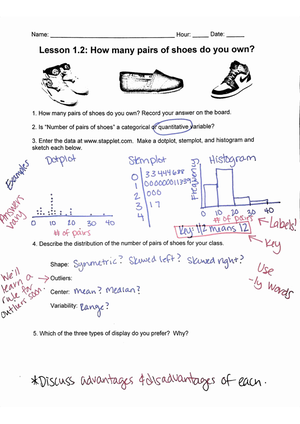 Name: ______ Hour: ____ Date: ____
Lesson 1.2: How many pairs of shoes do you own?
1. How many pairs of shoes do you own? Record your answer on the board.
2. Is "Number of pairs of shoes" a categorical or quantitative variable?
3. Enter the data at www.stapplet.com. Make a dotplot, stemplot, and histogram and
sketch each below.
Examples
Dotplot
Stemplot
Histogram
Answers
vary
0 10 20 30 40
# of pairs
0
1
2 000
3 17
4
Frequency
0 10 20 30 40
# of pairs
Key: 1|2 means 12
Labels!
Key
4. Describe the distribution of the number of pairs of shoes for your class.
We'll
learn a
rule for
outliers soon.
Shape: Symmetric? Skewed left? Skewed right?
Outliers:
Center: mean? Median?
Variability: Range?
Use
-ly words
5. Which of the three types of display do you prefer? Why?
*Discuss advantages & disadvantages of each.